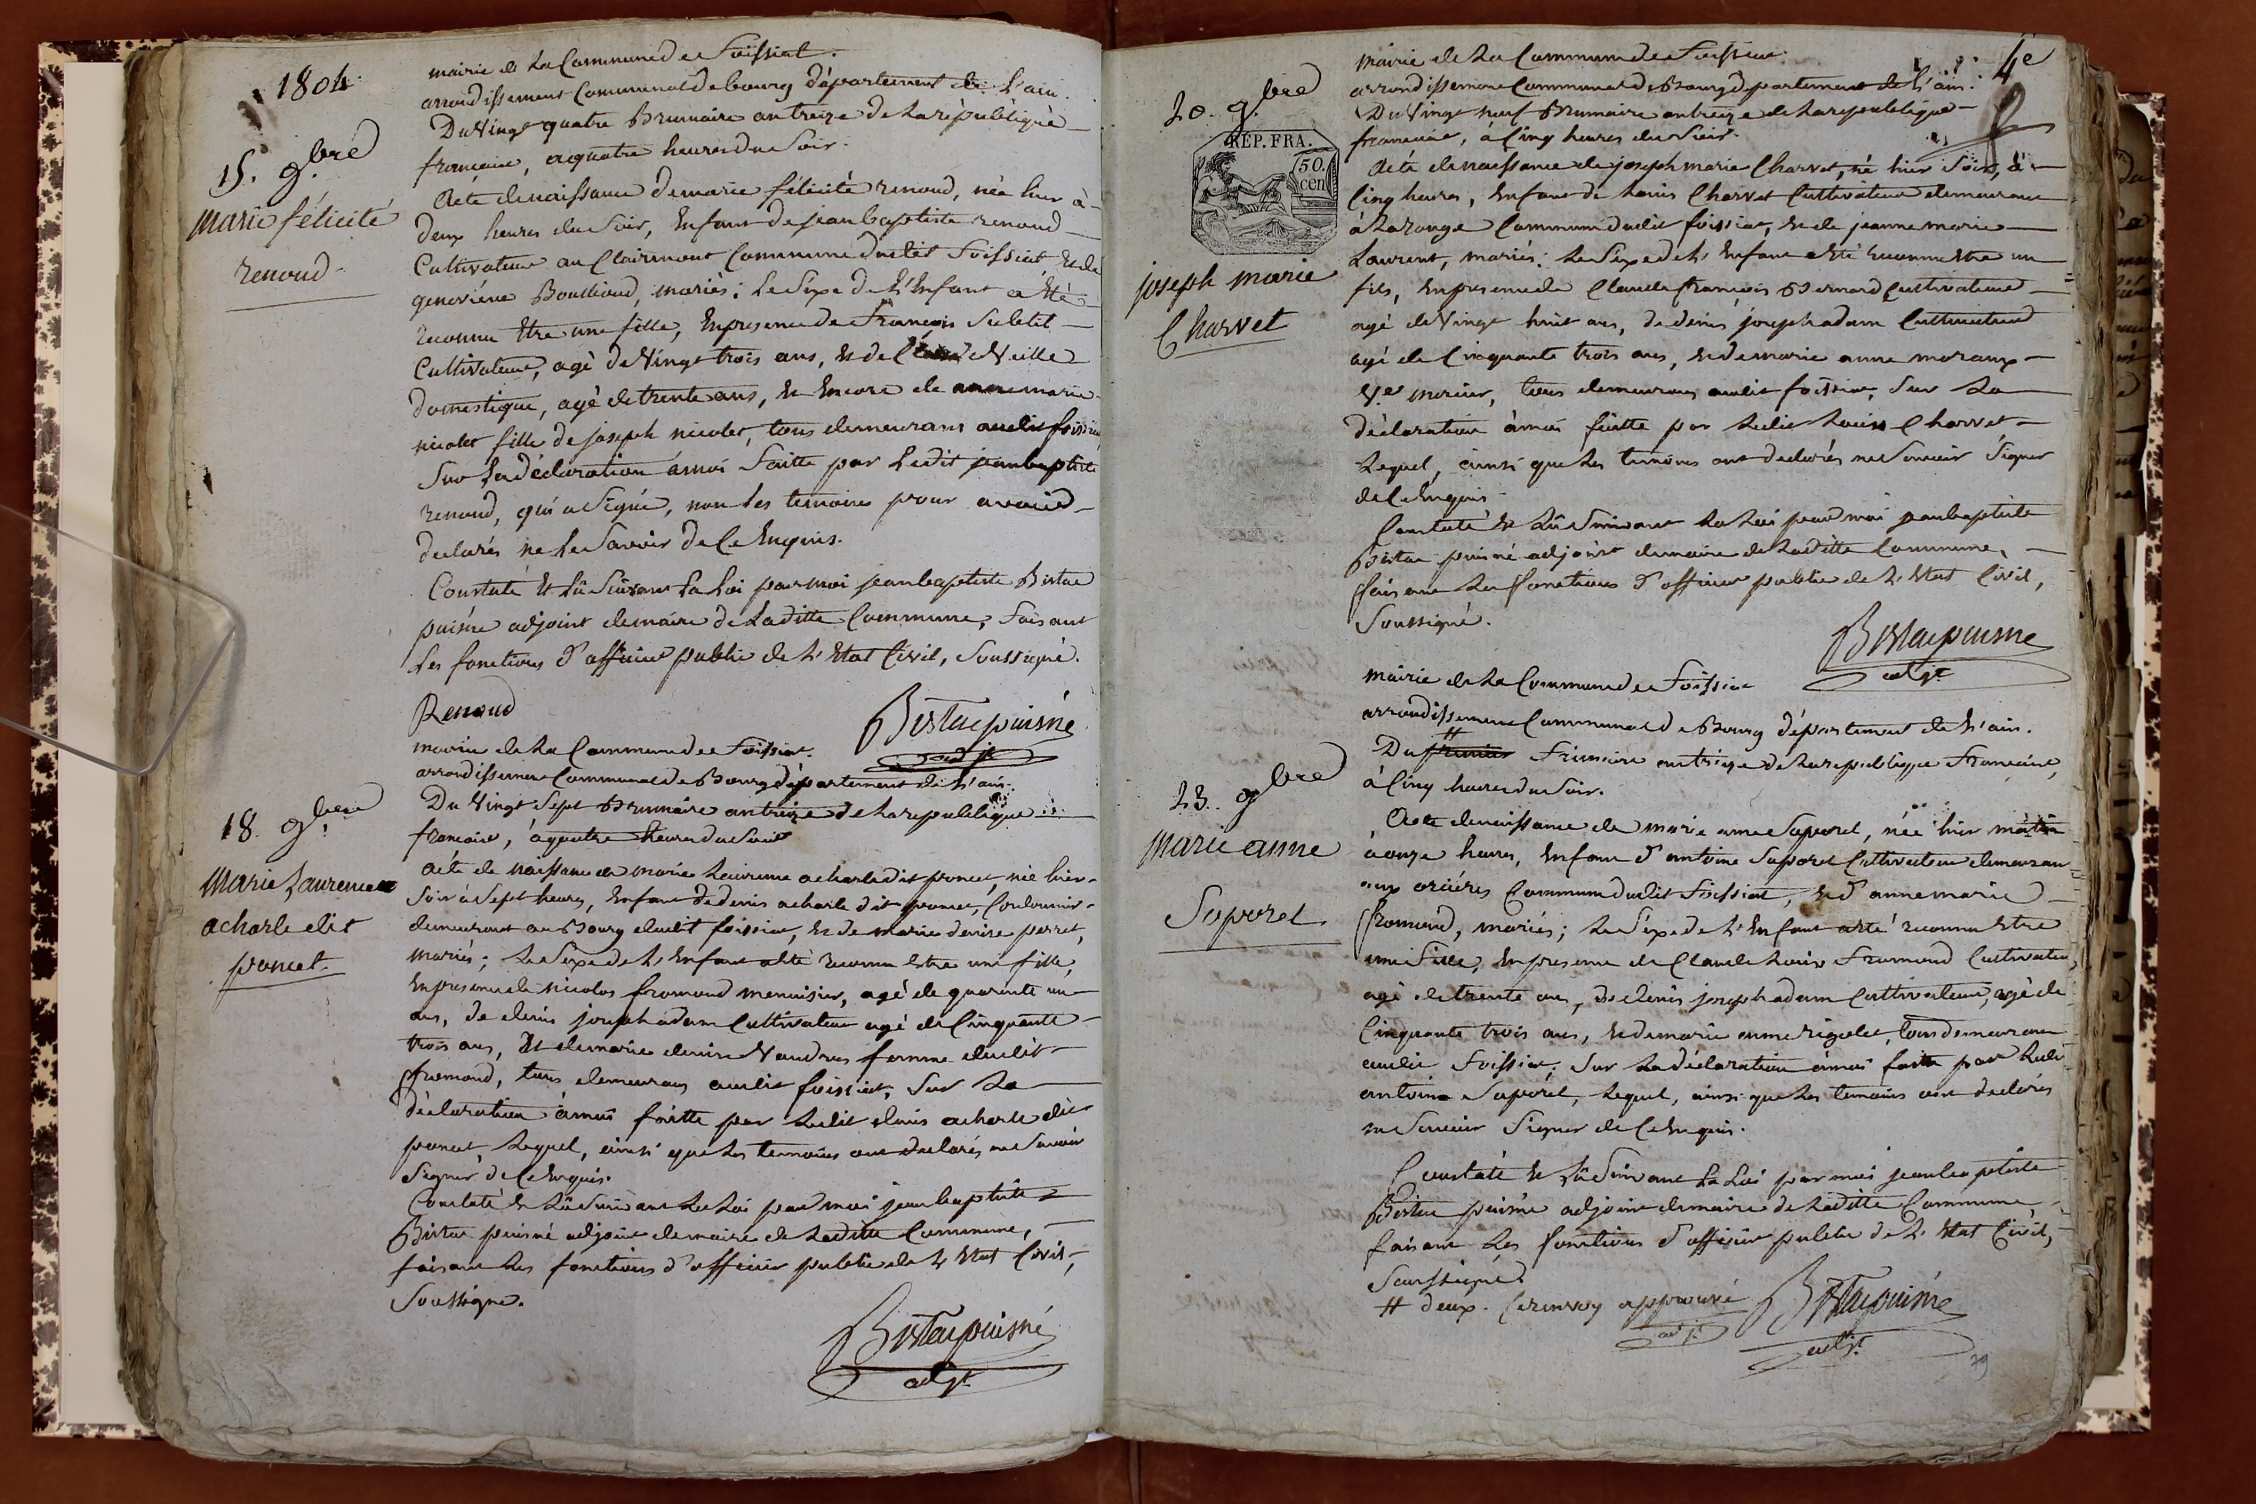 1804.
mairie de La Commune de Foissiat.
arrondissement Communal de bourg département de L'ain.
Du Vingt quatre Brumaire an treize de La république
francaise, a quatre heures du Soir.
15. 9.bre
Marie félicité
renoud
Acte de naissance de marie félicité renoud, née hier à
deux heures du Soir, Enfant de jean baptiste renoud
Cultivateur au Clairmont Commune dudit Foissiat Et de
genevieve Boullioud, mariés; Le Sexe de L'Enfant a Eté
reconnu Etre une fille, En presence de François
Cultivateur, agé de Vingt trois ans, Et de Veille
domestique, agé de trente ans, Et Encore de anne marie
nicolet fille de joseph nicolet, tous demeurans audit foissiat
Sur La déclaration à moi faitte par Ledit jean baptiste
renoud, qui a Signé, non Les temoins pour avoir
declarés ne Le Savoir de Ce Enquis.
Constaté Et Lû Suivant La Loi par moi jean baptiste Bistac
puisné adjoint de maire de Laditte Commune, faisant
Les fonctions d'officier public de L'Etat Civil, Soussigné.
Renoud
Bistac puisné
adjt
mairie de La Commune de Foissiat.
arrondissement Communal de Bourg département de L'ain.
Du Vingt Sept Brumaire an treize de La republique
francaise, à quatre heures du Soir
18. 9.bre
Marie Laurence
acharle dit
poncet.
acte de naissance de marie Laurence acharle dit poncet, née hier
Soir à Sept heures, Enfant de denis acharle dit poncet,
demeurant au Bourg dudit foissiat, Et de marie denise perret,
mariés; Le Sexe de L'Enfant a Eté reconnu Etre une fille,
En presence de nicolas fromond menuisier, agé de quarente un
ans, de denis joseph adam Cultivateur agé de Cinquante
trois ans, Et de marie denise Vaudres femme dudit
fromond, tous demeurans audit foissiat, Sur La
déclaration à moi faitte par Ledit denis acharle dit
poncet, Lequel, ainsi que Les temoins ont declarés ne Savoir
Signer de Ce Enquis.
Constaté Et Lû Suivant La Loi par moi jean baptiste
Bistac puisné adjoint de maire de Laditte Commune,
faisant Les fonctions d'officier public de L'Etat Civil,
Soussigné.
Bistac puisné
adjt
4e
mairie de La Commune de Foissiat.
arrondissement Communal de Bourg departement de L'ain.
Du Vingt neuf Brumaire an treize de La republique
francaise, à Cinq heures du Soir.
20. 9.bre
REP. FRA.
50.
cen
joseph marie
Charvet
Acte de naissance de joseph marie Charvet, né hier Soir, à
Cinq heures, Enfant de Louis Charvet Cultivateur demeurant
à Commune dudit foissiat, Et de jeanne marie
Laurent, mariés; Le Sexe de L'Enfant a Eté reconnu Etre un
fils, En presence de Claude françois Bernard Cultivateur
agé de Vingt huit ans, de denis joseph adam Cultivateur
agé de Cinquante trois ans, Et de marie anne moraux
V.e morier, tous demeurans audit foissiat, Sur La
déclaration à moi faitte par Ledit Louis Charvet
Lequel, ainsi que Les temoins ont declarés ne Savoir Signer
de Ce Enquis.
Constaté Et Lû Suivant La Loi par moi jean baptiste
Bistac puisné adjoint de maire de Laditte Commune,
faisant Les fonctions d'officier public de L'Etat Civil,
Soussigné.
Bistac puisné
adjt
mairie de La Commune de Foissiat
arrondissement Communal de Bourg département de L'ain.
Du premier # Frimaire an treize de La republique Francaise,
à Cinq heures du Soir.
23. 9bre
Marie anne
Soporel
Acte de naissance de marie anne Soporel, née hier matin
à onze heures, Enfant d'antoine Soporel Cultivateur demeurant
aux Commune dudit Foissiat, Et d'anne marie
fromond, mariés; Le Sexe de L'Enfant a Eté reconnu Etre
une fille, En presence de Claude Louis Fromond Cultivateur,
agé de trente ans, de denis joseph adam Cultivateur, agé de
Cinquante trois ans, Et de marie anne rigolet, tous demeurans
audit Foissiat, Sur La déclaration à moi faitte par Ledit
antoine Soporel, Lequel, ainsi que Les temoins ont declarés
ne Savoir Signer de Ce Enquis.
Constaté Et Lû Suivant La Loi par moi jean baptiste
Bistac puisné adjoint de maire de Laditte Commune
faisant Les fonctions d'officier public de L'Etat Civil,
Soussigné
# deux. Ce renvoy approuvé
adjt
Bistac puisné
adjt.